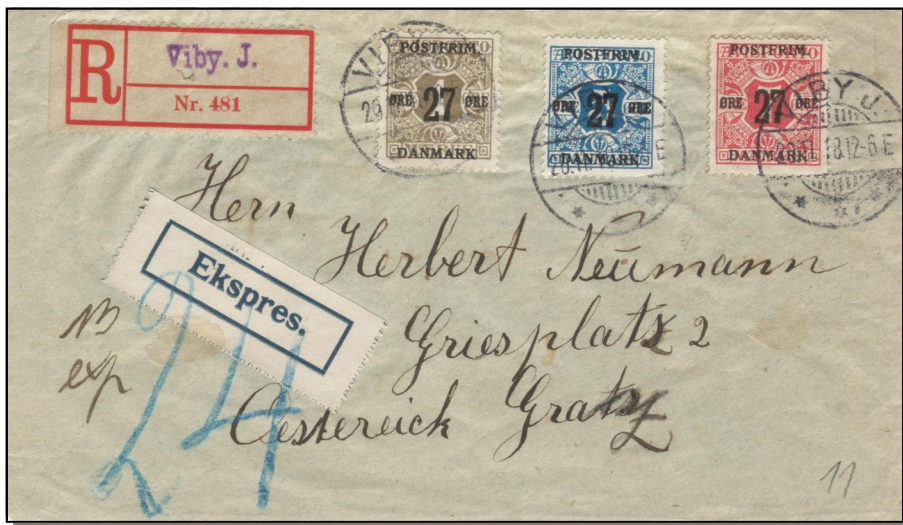 R
Viby. J.
Nr. 481
POSTFRIM.
ØRE 27 ØRE
DANMARK
POSTFRIM.
ØRE 27 ØRE
DANMARK
POSTFRIM.
ØRE 27 ØRE
DANMARK
VIBY J.
18.12-6 E
Hern
Herbert Neumann
Ekspres.
Griesplatz 2
NB
exp
24
Oestereick Gratz
11